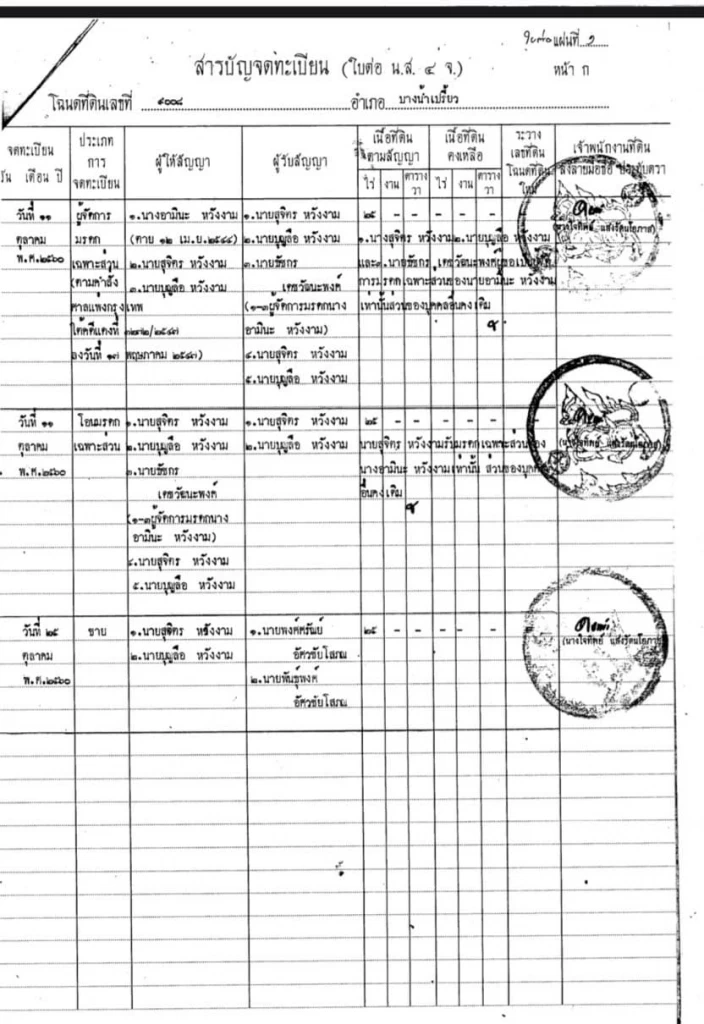 ใบต่อแผ่นที่ ๑
สารบัญจดทะเบียน (ใบต่อ น.ส. ๔ จ.)
หน้า ก
โฉนดที่ดินเลขที่ ๙๐๐๘ อำเภอ บางน้ำเปรี้ยว
จดทะเบียน
วัน เดือน ปี
ประเภท
การ
จดทะเบียน
ผู้ให้สัญญา
ผู้รับสัญญา
เนื้อที่ดิน
ตามสัญญา
ไร่ งาน ตารางวา
เนื้อที่ดิน
คงเหลือ
ไร่ งาน ตารางวา
ระวาง
เลขที่ดิน
โฉนดที่ดิน
ใหม่
เจ้าพนักงานที่ดิน
ลงลายมือชื่อ ประทับตรา
วันที่ ๑๑
ตุลาคม
พ.ศ.๒๕๖๐
ผู้จัดการ
มรดก
เฉพาะส่วน
(ตามคำสั่ง
ศาลแพ่งกรุงเทพ
ใต้คดีแดงที่ /๒๕๔๗
ลงวันที่ ๑๗ พฤษภาคม ๒๕๔๗)
๑.นางอามีนะ หวังงาม
(ตาย ๑๒ เม.ย.๒๕๔๔)
๒.นายสุจิตร หวังงาม
๓.นายบุญลือ หวังงาม
๑.นายสุจิตร หวังงาม
๒.นายบุญลือ หวังงาม
๓.นายชัชกร
เดชวัฒนะพงศ์
(๑-๓ผู้จัดการมรดกนาง
อามีนะ หวังงาม)
๔.นายสุจิตร หวังงาม
๕.นายบุญลือ หวังงาม
๒๕ - - - - -
๑.นายสุจิตร หวังงาม๒.นายบุญลือ หวังงาม
และ๓.นายชัชกร เดชวัฒนะพงศ์
การมรดกเฉพาะส่วนของนางอามีนะ หวังงาม
เท่านั้นส่วนของบุคคลอื่นคงเดิม
(นางใจทิพย์ แสงรัตนโอภาส)
วันที่ ๑๑
ตุลาคม
พ.ศ.๒๕๖๐
โอนมรดก
เฉพาะส่วน
๑.นายสุจิตร หวังงาม
๒.นายบุญลือ หวังงาม
๓.นายชัชกร
เดชวัฒนะพงศ์
(๑-๓ผู้จัดการมรดกนาง
อามีนะ หวังงาม)
๔.นายสุจิตร หวังงาม
๕.นายบุญลือ หวังงาม
๑.นายสุจิตร หวังงาม
๒.นายบุญลือ หวังงาม
๒๕ - - - - - -
นายสุจิตร หวังงามรับมรดกเฉพาะส่วนของ
นางอามีนะ หวังงามเท่านั้น ส่วนของบุคคล
อื่นคงเดิม
(นางใจทิพย์ แสงรัตนโอภาส)
วันที่ ๒๕
ตุลาคม
พ.ศ.๒๕๖๐
ขาย
๑.นายสุจิตร หวังงาม
๒.นายบุญลือ หวังงาม
๑.นายพงศ์ศรัณย์
อัศวชัยโสภณ
๒.นายพันธุ์พงศ์
อัศวชัยโสภณ
๒๕ - - - - - -
(นางใจทิพย์ แสงรัตนโอภาส)